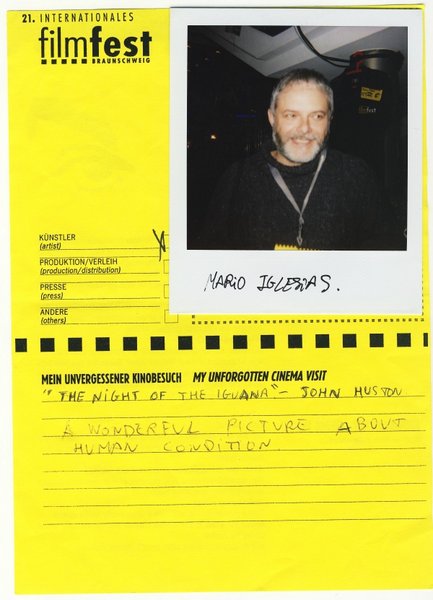 21. INTERNATIONALES
filmfest
BRAUNSCHWEIG
filmfest
MARIO IGLESIAS.
KÜNSTLER
(artist)
X
PRODUKTION/VERLEIH
(production/distribution)
PRESSE
(press)
ANDERE
(others)
MEIN UNVERGESSENER KINOBESUCH MY UNFORGOTTEN CINEMA VISIT
"THE NIGHT OF THE IGUANA" - JOHN HUSTON
A WONDERFUL PICTURE ABOUT
HUMAN CONDITION